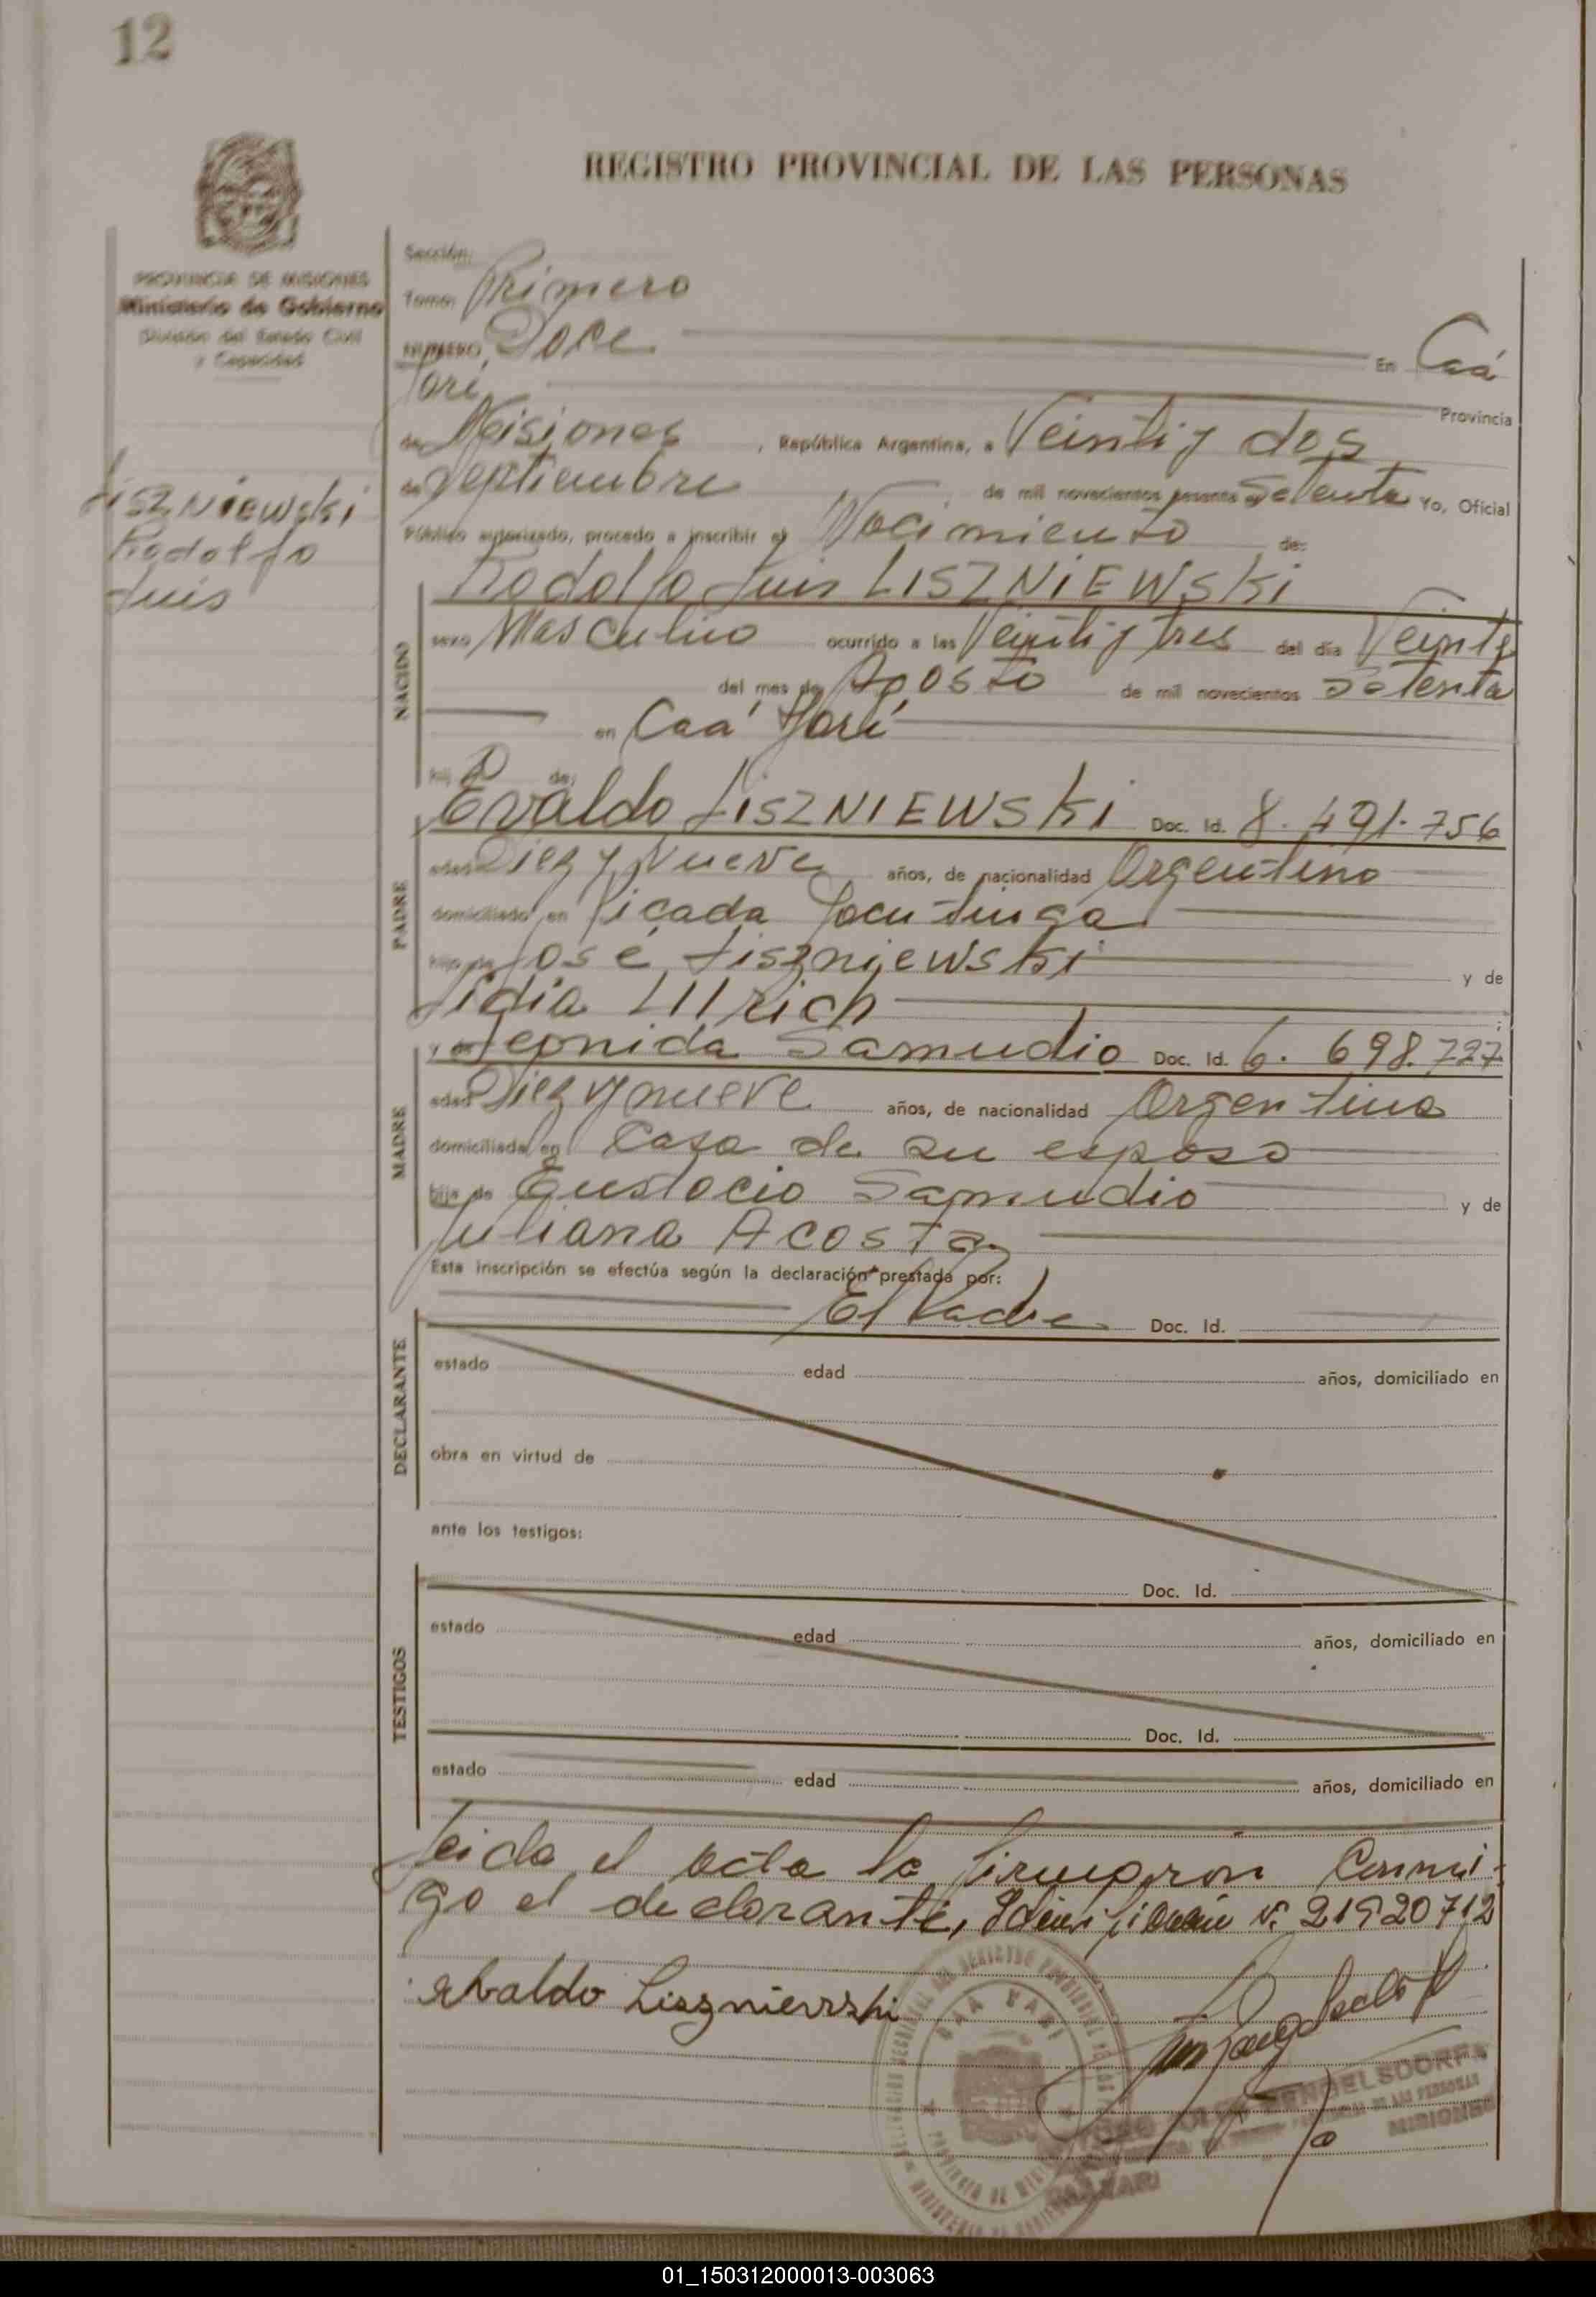 12
REGISTRO PROVINCIAL DE LAS PERSONAS
PROVINCIA DE MISIONES
Ministerio de Gobierno
División del Estado Civil
y Capacidad
Liszniewski
Rodolfo
Luis
Sección:
Tomo: Primero
NUMERO, Doce En Caá
Yarí Provincia
de Misiones, República Argentina, a Veinti y dos
de Septiembre de mil novecientos sesenta y Setenta Yo, Oficial
Público autorizado, procedo a inscribir el Nacimiento de:
NACIDO
Rodolfo Luis LISZNIEWSKI
sexo Masculino ocurrido a las Veinti y tres del día Veinte
del mes de Agosto de mil novecientos Setenta
en Caá Yarí
hij o de:
PADRE
Evaldo LISZNIEWSKI Doc. Id. 8.491.756
edad Diez y Nueve años, de nacionalidad Argentino
domiciliado en Picada
hijo de José Liszniewski y de
Lidia Ullrich
MADRE
y de Leonida Samudio Doc. Id. 6.698.727
edad Diez y nueve años, de nacionalidad Argentina
domiciliada en Casa de su esposo
hija de Eustacio Samudio y de
Juliana Acosta
Esta inscripción se efectúa según la declaración prestada por:
El Padre Doc. Id.
DECLARANTE
estado edad años, domiciliado en
obra en virtud de
ante los testigos:
TESTIGOS
Doc. Id.
estado edad años, domiciliado en
Doc. Id.
estado edad años, domiciliado en
Leida el acta la firmaron Conmi-
go el declarante, N° 21920712
Evaldo Liszniewski
CAA YARI
MISIONES
01_150312000013-003063